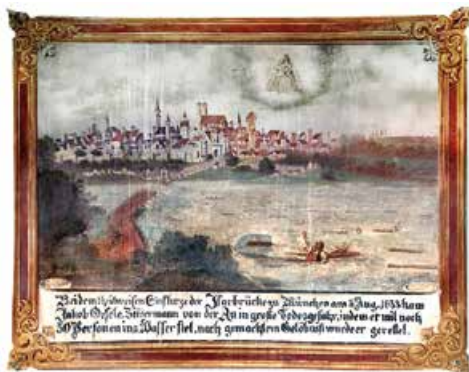 Bei dem theilweisen Einsturze der Isarbrücke zu München am Aug. kam
Jakob Zimermann von der Au in große Todesgefahr, indem er mit noch
30 Personen ins Wasser fiel, nach gemachtem Gelöbniß wurde er gerettet.